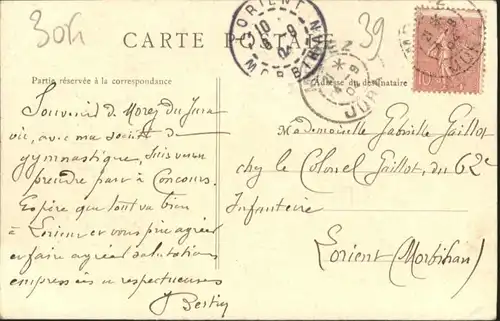 30f
39
CARTE POSTALE
Partie réservée à la correspondance
Adresse du destinataire
LORIENT
10
MORBIHAN
JURA
10
Souvenir de Morez du Jura
où, avec ma société de
gymnastique, suis venu
prendre part à Concours.
Espère que tout va bien
à Lorient et vous prie agréer
et faire agréer salutations
empressées & respectueuses
Bertin
Mademoiselle Gabrielle Gaillot
chez le Colonel Gaillot, du 62e
Infanterie
Lorient (Morbihan)